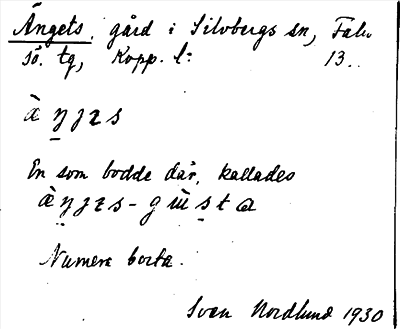 Ängets, gård i Silvbergs sn, Falu
sö. tg, Kopp. l: 13.
En som bodde där, kallades
Numera borta.
Sven Nordlund 1930